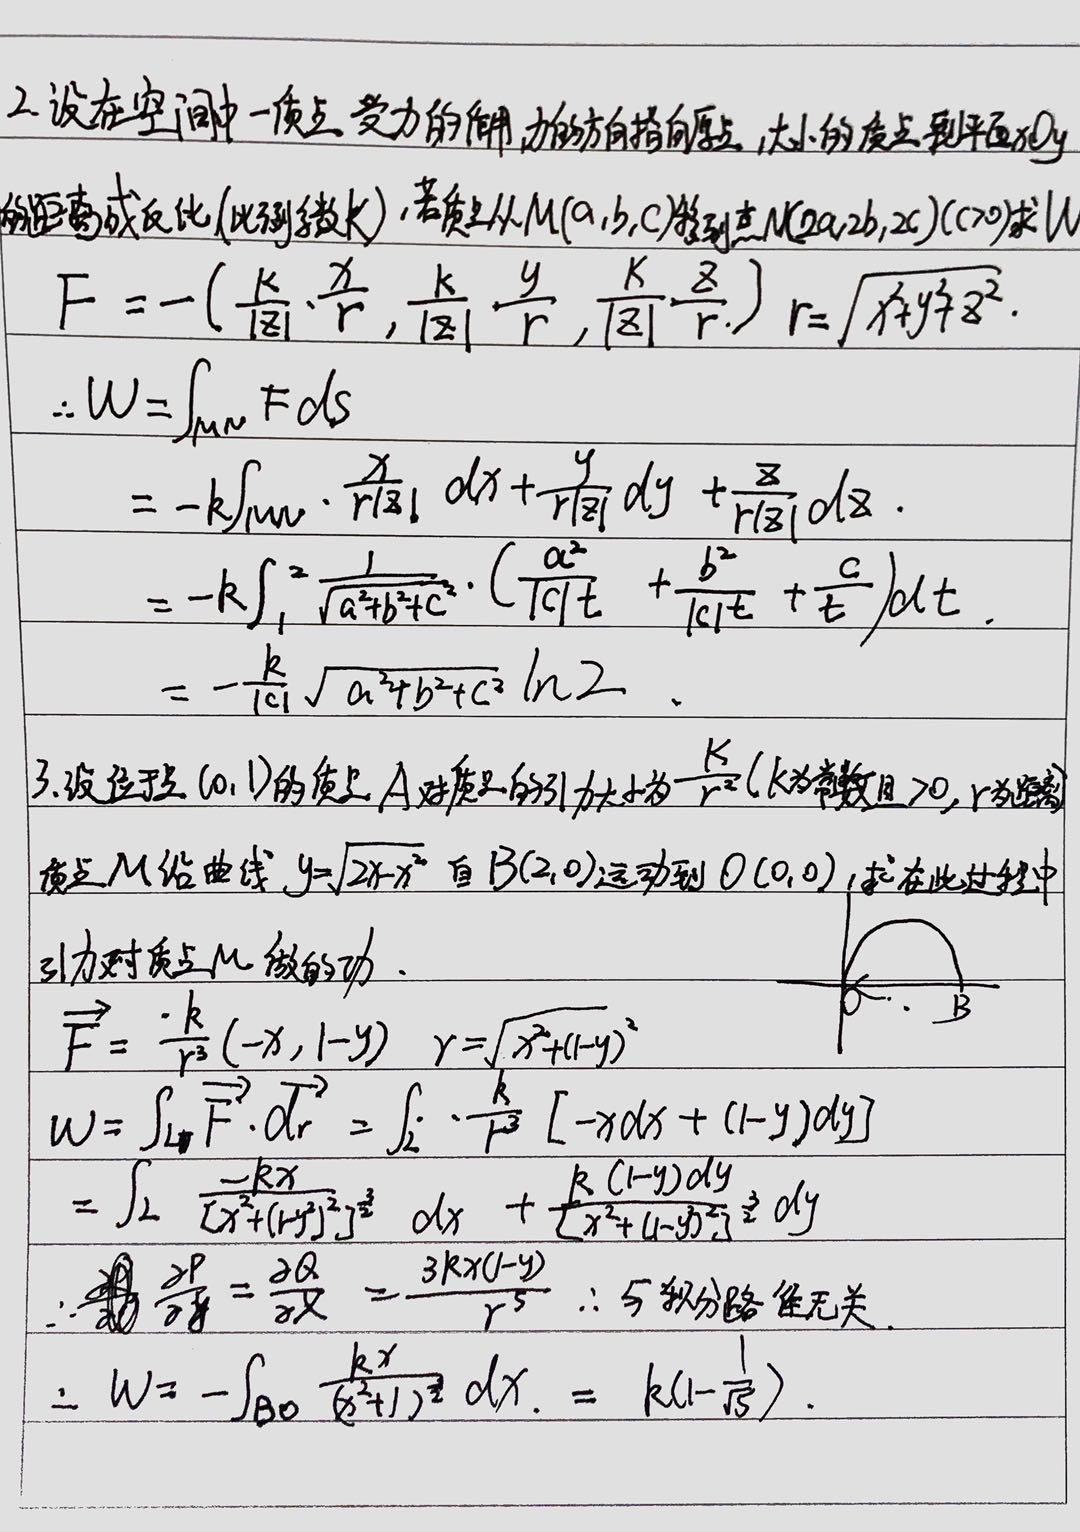 2.设在空间中一质点受力的作用,力的方向指向原点,大小的质点到平面xOy
的距离成反比(比例系数k),若质点从M(a,b,c)移到点N(2a,2b,2c)(c>0)求W
F = -(k/|z|·x/r, k/|z|·y/r, k/|z|·z/r) r=√(x²+y²+z²).
∴W=∫MN F ds
= -k∫MN · x/(r|z|) dx + y/(r|z|) dy + z/(r|z|) dz .
= -k∫₁² 1/√(a²+b²+c²) · (a²/(|c|t) + b²/(|c|t) + c/t)dt .
= -k/|c| √(a²+b²+c²) ln2 .
3.设位于点(0,1)的质点A对质点的引力大小为k/r²(k为常数且>0,r为距离)
质点M沿曲线 y=√(2x-x²) 自B(2,0)运动到O(0,0),求在此过程中
引力对质点M做的功.
O B
F = k/r³ (-x, 1-y) r=√(x²+(1-y)²)
W=∫L F·dr = ∫L · k/r³ [-xdx + (1-y)dy]
= ∫L -kx/[x²+(1-y²)²]^(3/2) dx + k(1-y)dy/[x²+(1-y)²]^(3/2) dy
∴ ∂P/∂y = ∂Q/∂x = 3kx(1-y)/r⁵ ∴与积分路径无关.
∴ W= -∫BO kx/(x²+1)^(3/2) dx. = k(1-1/√5).